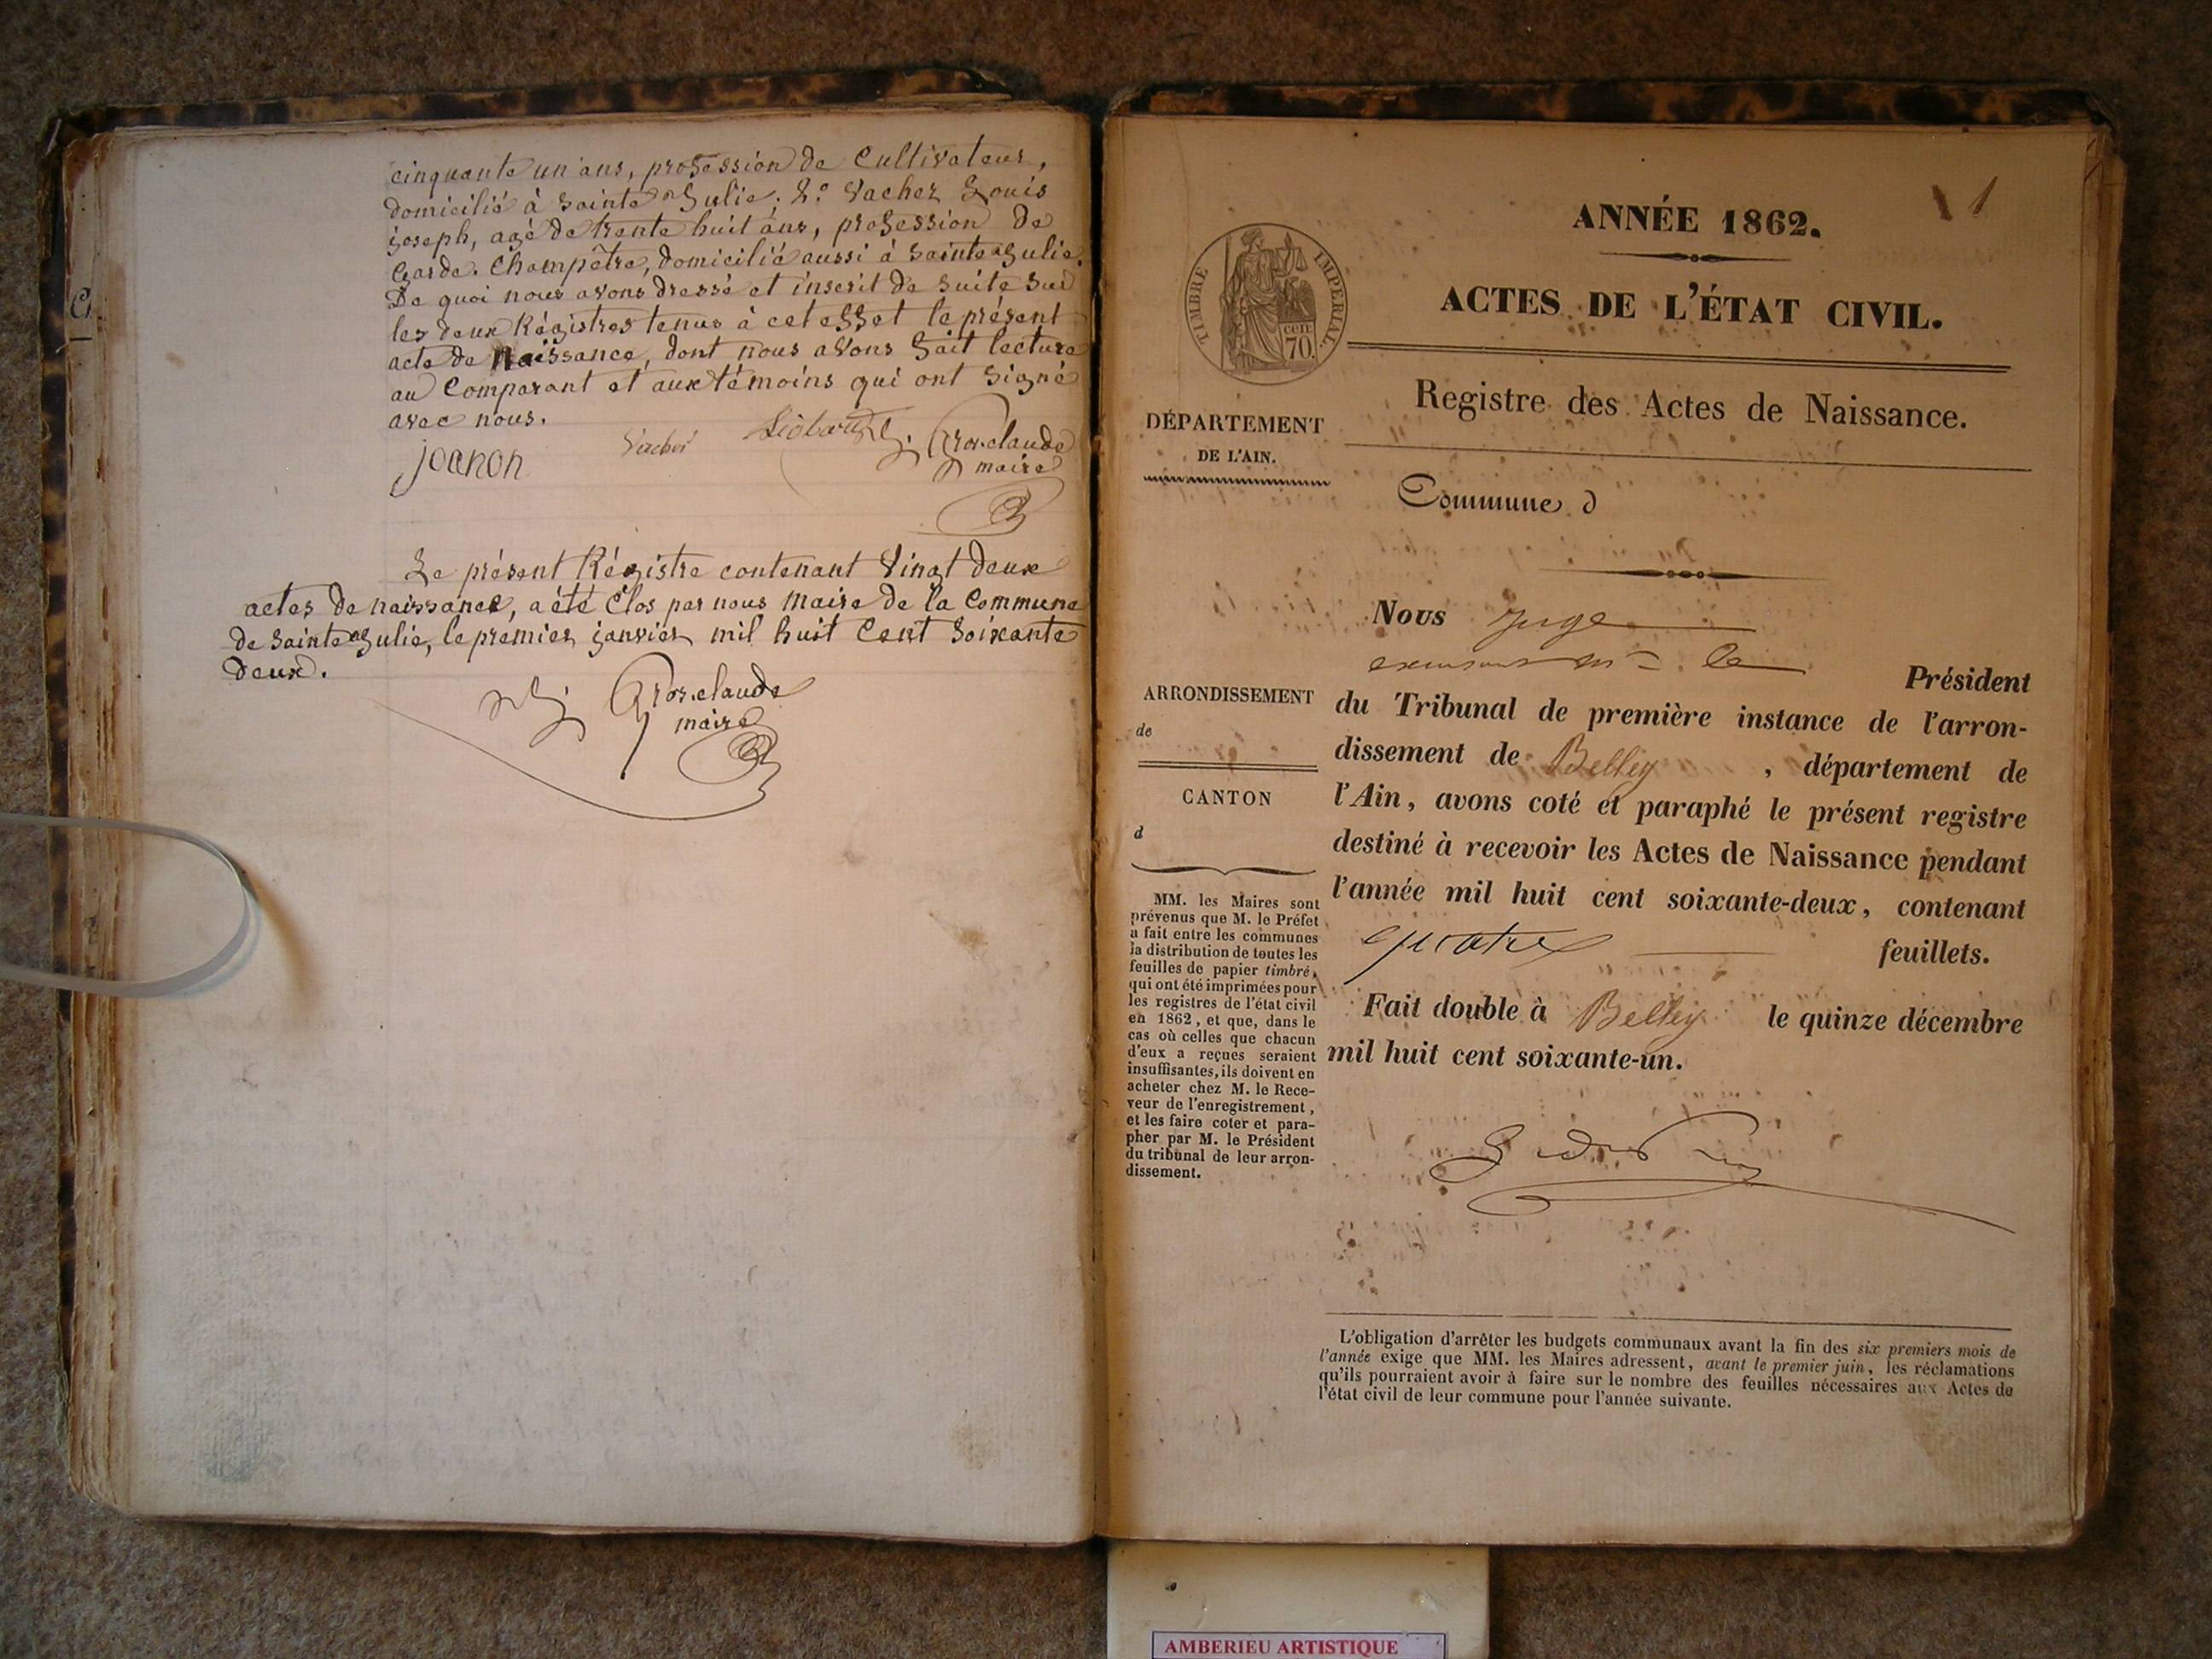 cinquante un ans, profession de Cultivateur,
domicilié à Sainte Julie; 2.° Vachez Louis
joseph, agé de trente huit ans, profession de
Garde. Champêtre, domicilié aussi à Sainte Julie.
De quoi nous avons dressé et inscrit de suite sur
les deux Régistres tenus à cet effet le présent
acte de Naissance, dont nous avons fait lecture
au Comparant et aux témoins qui ont signé
avec nous.
joanon
Gros.claude
maire
Le présent Régistre contenant Vingt deux
actes de naissance, a été Clos par nous Maire de la Commune
de Sainte Julie, le premier janvier mil huit Cent Soixante
deux.
Gros.claude
maire
1
ANNÉE 1862.
ACTES DE L'ÉTAT CIVIL.
TIMBRE IMPERIAL
CEN.
70.
Registre des Actes de Naissance.
DÉPARTEMENT
DE L'AIN.
Commune d
Nous juge
le Président
ARRONDISSEMENT
de
CANTON
d
du Tribunal de première instance de l'arron-
dissement de Belley , département de
l'Ain, avons coté et paraphé le présent registre
destiné à recevoir les Actes de Naissance pendant
l'année mil huit cent soixante-deux, contenant
quatre feuillets.
Fait double à Belley le quinze décembre
mil huit cent soixante-un.
MM. les Maires sont
prévenus que M. le Préfet
a fait entre les communes
la distribution de toutes les
feuilles de papier timbré,
qui ont été imprimées pour
les registres de l'état civil
en 1862, et que, dans le
cas où celles que chacun
d'eux a reçues seraient
insuffisantes, ils doivent en
acheter chez M. le Rece-
veur de l'enregistrement,
et les faire coter et para-
pher par M. le Président
du tribunal de leur arron-
dissement.
L'obligation d'arrêter les budgets communaux avant la fin des six premiers mois de
l'année exige que MM. les Maires adressent, avant le premier juin, les réclamations
qu'ils pourraient avoir à faire sur le nombre des feuilles nécessaires aux Actes de
l'état civil de leur commune pour l'année suivante.
AMBERIEU ARTISTIQUE